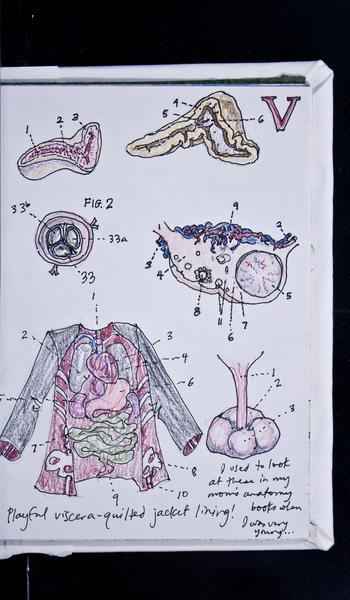 V
1 2 3
4
5
6
FIG. 2
33b
33a
33
9
3
2
4
5
8
11
6
7
1
2
3
4
6
7
8
9
10
1
2
3
I used to look
at these in my
mom's anatomy
books when
I was very
young...
Playful viscera-quilted jacket lining!